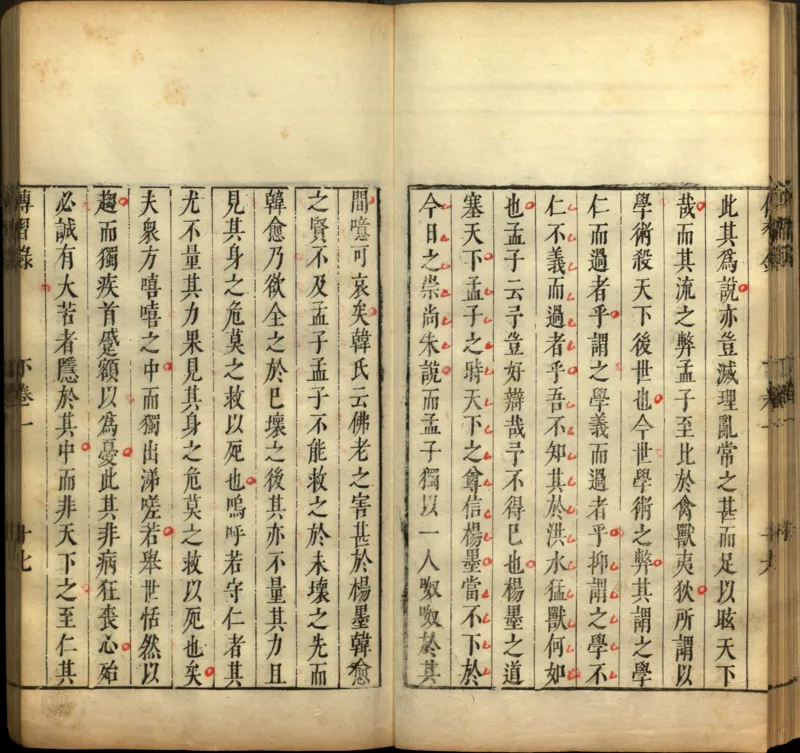 此其爲說亦豈滅理亂常之甚而足以眩天下
哉而其流之弊孟子至比於禽獸夷狄所謂以
學術殺天下後世也今世學術之弊其謂之學
仁而過者乎謂之學義而過者乎抑謂之學不
仁不義而過者乎吾不知其於洪水猛獸何如
也孟子云予豈好辯哉予不得已也楊墨之道
塞天下孟子之時天下之尊信楊墨當不下於
今日之崇尚朱說而孟子獨以一人呶呶於其
間噫可哀矣韓氏云佛老之害甚於楊墨韓愈
之賢不及孟子孟子不能救之於未壞之先而
韓愈乃欲全之於已壞之後其亦不量其力且
見其身之危莫之救以死也嗚呼若守仁者其
尤不量其力果見其身之危莫之救以死也矣
夫衆方嘻嘻之中而獨出涕嗟若舉世恬然以
趨而獨疾首蹙額以爲憂此其非病狂喪心殆
必誠有大苦者隱於其中而非天下之至仁其
傳習錄 下卷一 十七